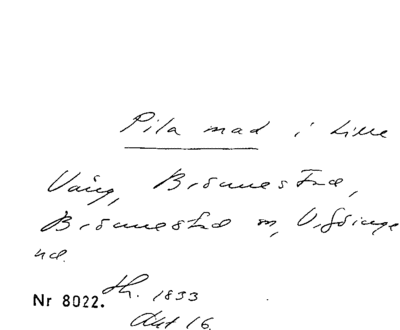 Pila mad i Lille
Väng, Brönnestad,
Brönnestad sn, V. Göinge
hd.
Nr 8022. th. 1833
Akt 16.